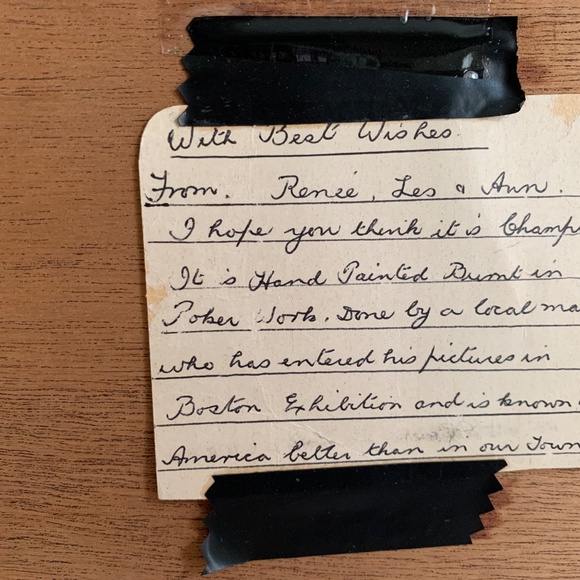 With Best Wishes.
From. Renée, Les & Ann.
I hope you think it is Champ
It is Hand Painted Burnt in
Poker Work. Done by a local ma
who has entered his pictures in
Boston Exhibition and is known
America better than in our Town